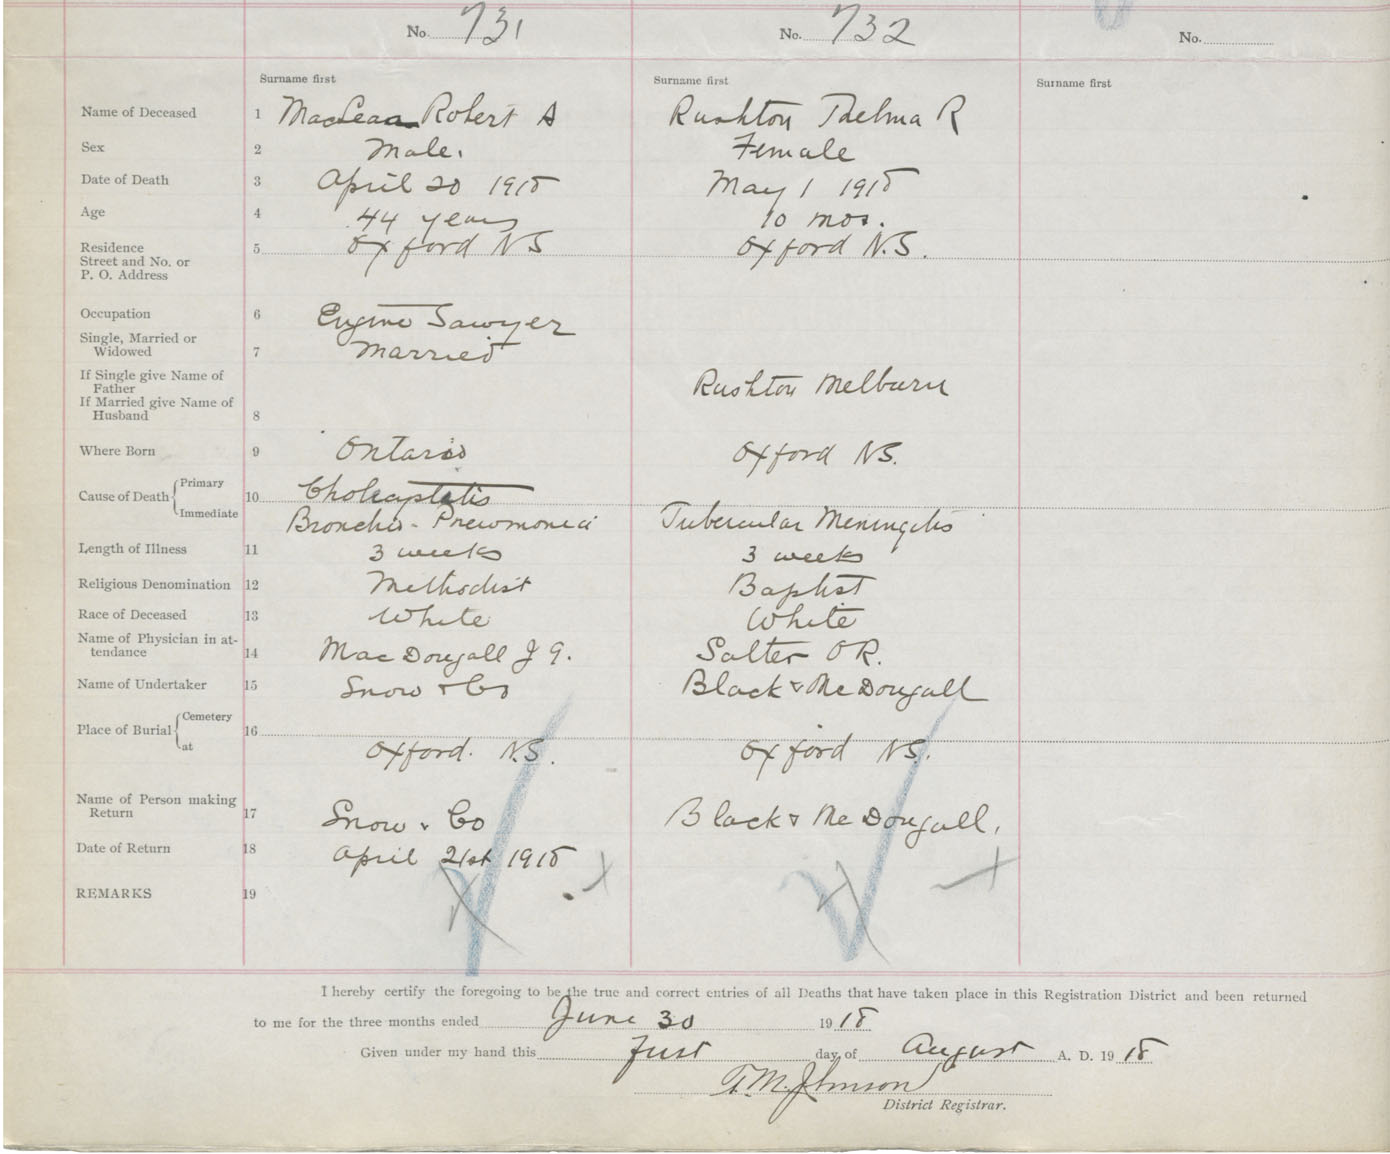 No. 731 No. 732 No.
Surname first Surname first Surname first
Name of Deceased 1 MacLean Robert A Rushton Thelma R
Sex 2 Male. Female
Date of Death 3 April 20 1918 May 1 1918
Age 4 44 years 10 mos.
Residence 5 Oxford NS Oxford N.S.
Street and No. or
P. O. Address
Occupation 6 Engine Sawyer
Single, Married or
Widowed 7 Married
If Single give Name of
Father Rushton Melburn
If Married give Name of
Husband 8
Where Born 9 Ontario Oxford NS.
Cause of Death Primary 10
Immediate Broncho-Pneumonia Tubercular Meningitis
Length of Illness 11 3 weeks 3 weeks
Religious Denomination 12 Methodist Baptist
Race of Deceased 13 White White
Name of Physician in at-
tendance 14 MacDougall J G. Salter O R.
Name of Undertaker 15 Snow & Co Black & McDougall
Place of Burial Cemetery 16
at Oxford. N.S. Oxford NS.
Name of Person making
Return 17 Snow & Co Black & McDougall.
Date of Return 18 April 21st 1918
REMARKS 19
I hereby certify the foregoing to be the true and correct entries of all Deaths that have taken place in this Registration District and been returned
to me for the three months ended June 30 1918
Given under my hand this First day of August A. D. 1918
T. M. Johnson
District Registrar.